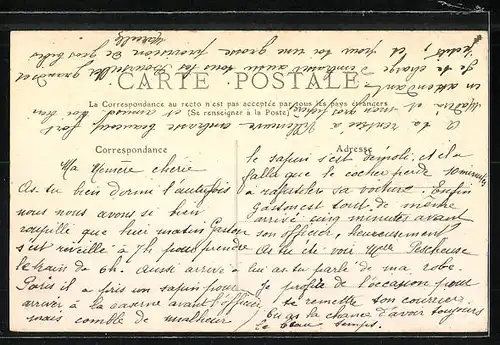 CARTE POSTALE
La Correspondance au recto n'est pas acceptée par tous les pays étrangers
(Se renseigner à la Poste)
Correspondance
Adresse
Ma chérie
As tu bien dormi l'autre fois
nous nous avons si bien
roupillé que hier matin Gaston
s'est réveillé à 7h pour prendre
le train de 6h. Aussi arrivé à
Paris il a pris un sapin pour
arriver à la caserne avant l'officier
mais comble de malheur
le sapin s'est démoli et il a
fallu que le cocher perde 10 minutes
à rafistoler sa voiture. Enfin
Gaston est tout de même
arrivé cinq minutes avant
son officier, heureusement
As tu été voir Melle Pescheuse
lui as tu parlé de ma robe.
Je profite de l'occasion pour
se remettre son courrier.
Tu as la chance d'avoir toujours
le beau temps.
A la rentrée à embrasse beaucoup fort
et mon gros
en attendant
Je te charge d'embrasser aussi tous les grandes
et pour toi une grosse provision de gros bibis